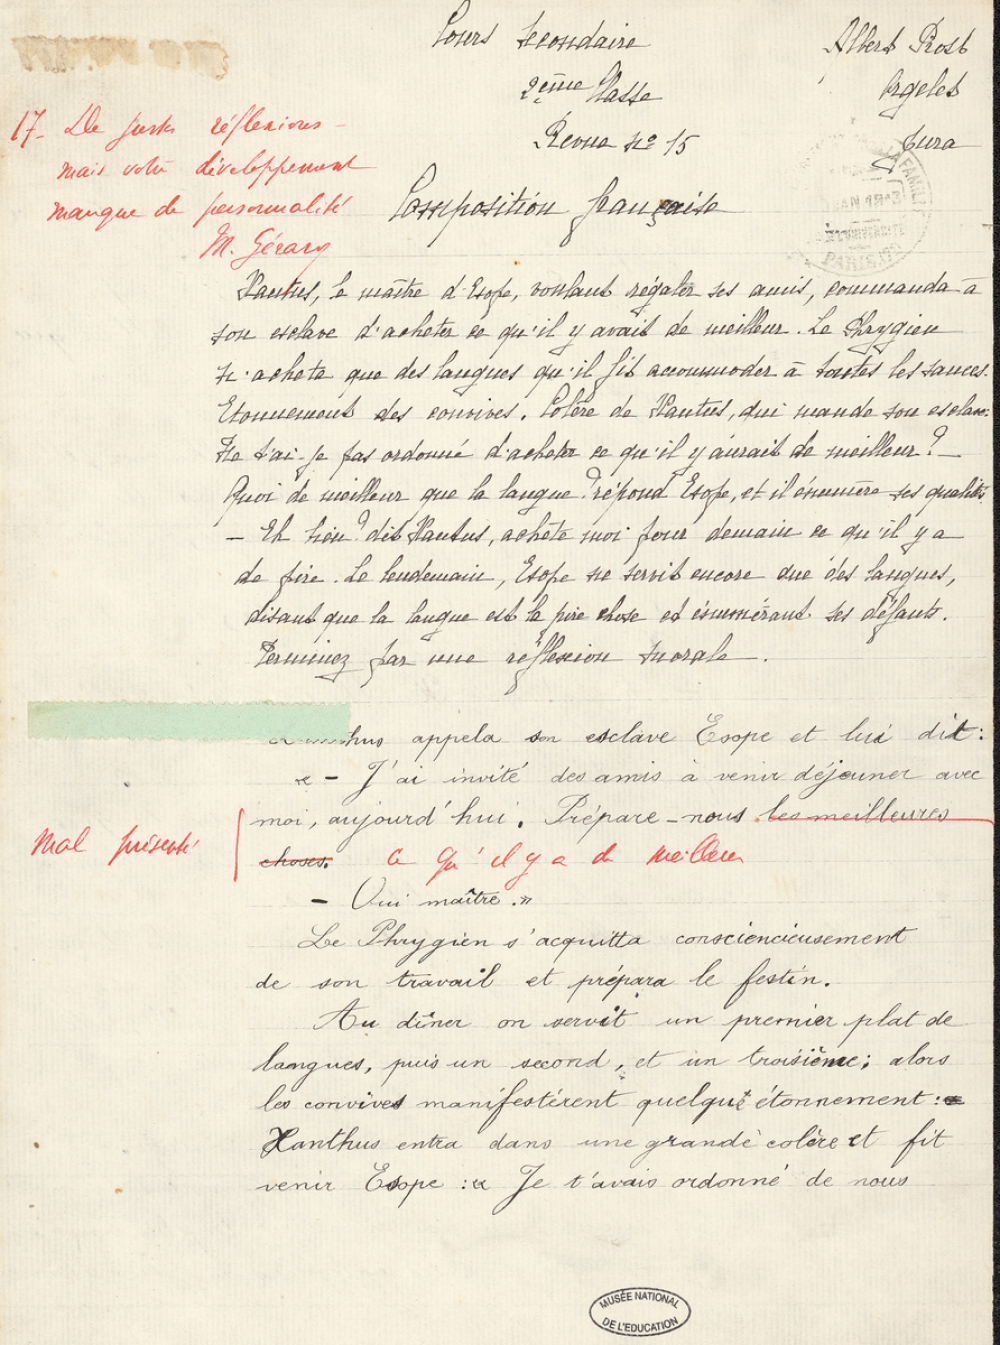 Cours Secondaire
2ème Classe
Revue No 15
Albert Prost
Orgelet
Jura
17- De justes réflexions -
mais votre développement
manque de personnalité
M. Gérary
Composition française
Xantus, le maître d'Esope, voulant régaler ses amis, commanda à
son esclave d'acheter ce qu'il y avait de meilleur. Le Phrygien
n'acheta que des langues qu'il fit accommoder à toutes les sauces.
Etonnement des convives. Colère de Xantus, qui mande son esclave:
Ne t'ai-je pas ordonné d'acheter ce qu'il y aurait de meilleur? -
Quoi de meilleur que la langue? répond Esope, et il énumère ses qualités
- Eh bien? dit Xantus, achète moi pour demain ce qu'il y a
de pire. Le lendemain, Esope ne servit encore que des langues,
disant que la langue est la pire chose et énumérant ses défauts.
Terminez par une réflexion morale.
appela son esclave Esope et lui dit:
« - J'ai invité des amis à venir déjeuner avec
moi, aujourd'hui. Prépare-nous les meilleures
choses. ce qu'il y a de meilleur
mal présenté
- Oui maître.»
Le Phrygien s'acquitta consciencieusement
de son travail et prépara le festin.
Au dîner on servit un premier plat de
langues, puis un second, et un troisième; alors
les convives manifestèrent quelque étonnement:
Xanthus entra dans une grande colère et fit
venir Esope :« Je t'avais ordonné de nous
MUSÉE NATIONAL
DE L'EDUCATION